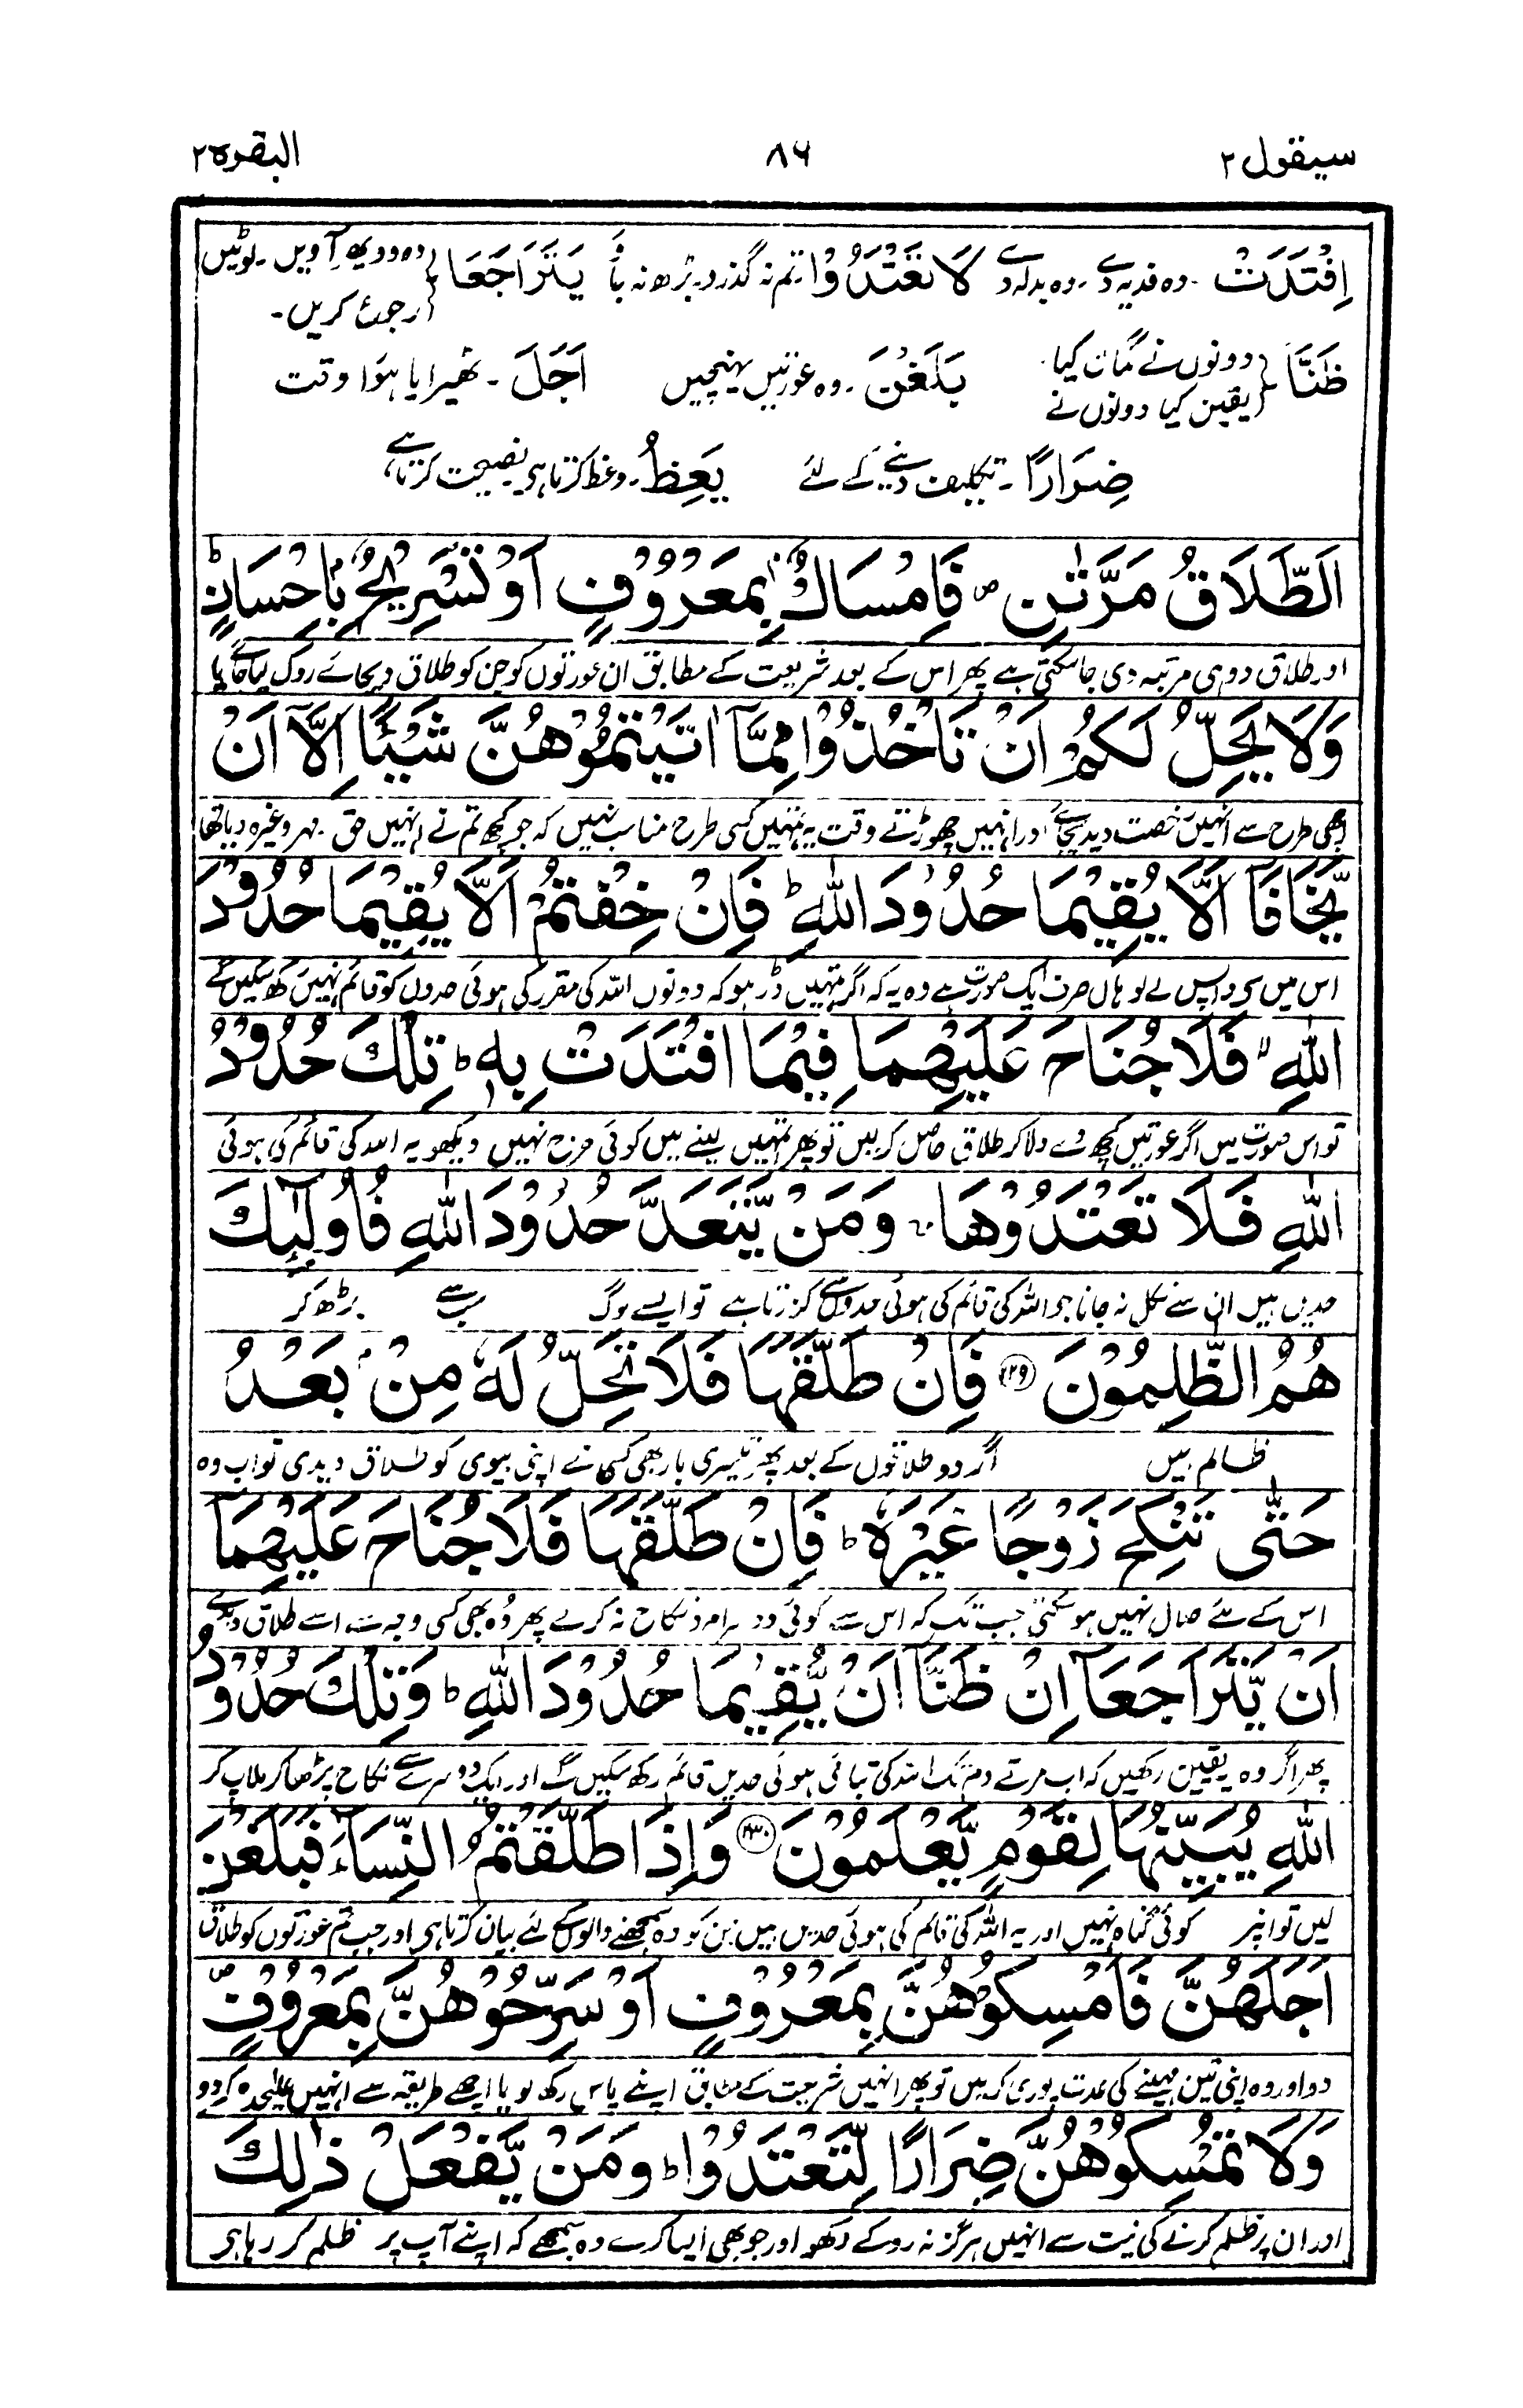 سیقول ۲
۸۶
البقرہ ۲
اِفْتَدَتْ ۔ وہ فدیہ دے ۔ وہ بدلہ دے لَا تَعْتَدُوْا ۔ تم نہ گذرو ۔ بڑھ نہ جاؤ یَتَرَاجَعَا وہ دو پھر آویں ۔ لوٹیں
رجوع کریں ۔
ظَنَّا دونوں نے گمان کیا بَلَغْنَ ۔ وہ عورتیں پہنچیں اَجَلَ ۔ ٹھیرایا ہوا وقت
یقین کیا دونوں نے
ضِرَارًا ۔ تکلیف دینے کے لئے یَعِظُ ۔ وعظ کرتا ہی ۔ نصیحت کرتا ہے
اَلطَّلَاقُ مَرَّتٰنِ ۪ فَاِمْسَاكٌۢ بِمَعْرُوْفٍ اَوْ تَسْرِیْحٌۢ بِاِحْسَانٍ ؕ
اور طلاق دو ہی مرتبہ دی جا سکتی ہے پھر اس کے بعد شریعت کے مطابق ان عورتوں کو جن کو طلاق دیجائے روک لیا جائے یا
وَلَا یَحِلُّ لَكُمْ اَنْ تَاْخُذُوْا مِمَّاۤ اٰتَیْتُمُوْهُنَّ شَیْـًٔا اِلَّاۤ اَنْ
اچھی طرح سے انہیں رخصت دیدیجائے اور انہیں چھوڑتے وقت یہ تمہیں کسی طرح مناسب نہیں کہ جو کچھ تم نے انہیں حق مہر وغیرہ دیا تھا
یَّخَافَاۤ اَلَّا یُقِیْمَا حُدُوْدَ اللّٰهِ ؕ فَاِنْ خِفْتُمْ اَلَّا یُقِیْمَا حُدُوْدَ
اس میں سی واپس لے لو ہاں صرف ایک صورت ہے وہ یہ کہ اگر تمہیں ڈر ہو کہ دونوں اللہ کی مقرر کی ہوئی حدوں کو قائم نہیں رکھ سکیں گے
اللّٰهِ ۙ فَلَا جُنَاحَ عَلَیْهِمَا فِیْمَا افْتَدَتْ بِهٖ ؕ تِلْكَ حُدُوْدُ
تو اس صورت میں اگر عورتیں کچھ دے دلا کر طلاق حاصل کریں تو پھر تمہیں لینے میں کوئی حرج نہیں دیکھو یہ اللہ کی قائم کی ہوئی
اللّٰهِ فَلَا تَعْتَدُوْهَا ۚ وَمَنْ یَّتَعَدَّ حُدُوْدَ اللّٰهِ فَاُولٰٓئِكَ
حدیں ہیں ان سے نکل نہ جانا جو اللہ کی قائم کی ہوئی حدوں سے گزرتا ہے تو ایسے لوگ سب سے بڑھ کر
هُمُ الظّٰلِمُوْنَ ﴿۲۲۹﴾ فَاِنْ طَلَّقَهَا فَلَا تَحِلُّ لَهٗ مِنْۢ بَعْدُ
ظالم ہیں اگر دو طلاقوں کے بعد پھر تیسری بار بھی کسی نے اپنی بیوی کو طلاق دیدی تو اب وہ
حَتّٰی تَنْكِحَ زَوْجًا غَیْرَهٗ ؕ فَاِنْ طَلَّقَهَا فَلَا جُنَاحَ عَلَیْهِمَاۤ
اس کے لئے حلال نہیں ہو سکتی جب تک کہ اس سے کوئی نکاح نہ کرے پھر وہ بھی کسی وجہ سے اسے طلاق دیدے
اَنْ یَّتَرَاجَعَاۤ اِنْ ظَنَّاۤ اَنْ یُّقِیْمَا حُدُوْدَ اللّٰهِ ؕ وَتِلْكَ حُدُوْدُ
پھر اگر وہ یہ یقین رکھیں کہ اب مرتے دم تک اللہ کی بتائی ہوئی حدیں قائم رکھ سکیں گے اور ایک دوسرے سے نکاح پڑھا کر ملاپ کر
اللّٰهِ یُبَیِّنُهَا لِقَوْمٍ یَّعْلَمُوْنَ ﴿۲۳۰﴾ وَاِذَا طَلَّقْتُمُ النِّسَآءَ فَبَلَغْنَ
لیں تو انپر کوئی گناہ نہیں اور یہ اللہ کی قائم کی ہوئی حدیں ہیں جن کو وہ سمجھنے والوں کے لئے بیان کرتا ہی اور جب تم عورتوں کو طلاق
اَجَلَهُنَّ فَاَمْسِكُوْهُنَّ بِمَعْرُوْفٍ اَوْ سَرِّحُوْهُنَّ بِمَعْرُوْفٍ ۪
دو اور وہ اپنی تین مہینے کی عدت پوری کرلیں تو پھر انہیں شریعت کے مطابق اپنے پاس رکھ لو یا اچھے طریقہ سے انہیں علیحدہ کر دو
وَلَا تُمْسِكُوْهُنَّ ضِرَارًا لِّتَعْتَدُوْا ۚ وَمَنْ یَّفْعَلْ ذٰلِكَ
اور ان پر ظلم کرنے کی نیت سے انہیں ہرگز نہ روکے رکھو اور جو بھی ایسا کرے وہ سمجھے کہ اپنے آپ پر ظلم کر رہا ہی